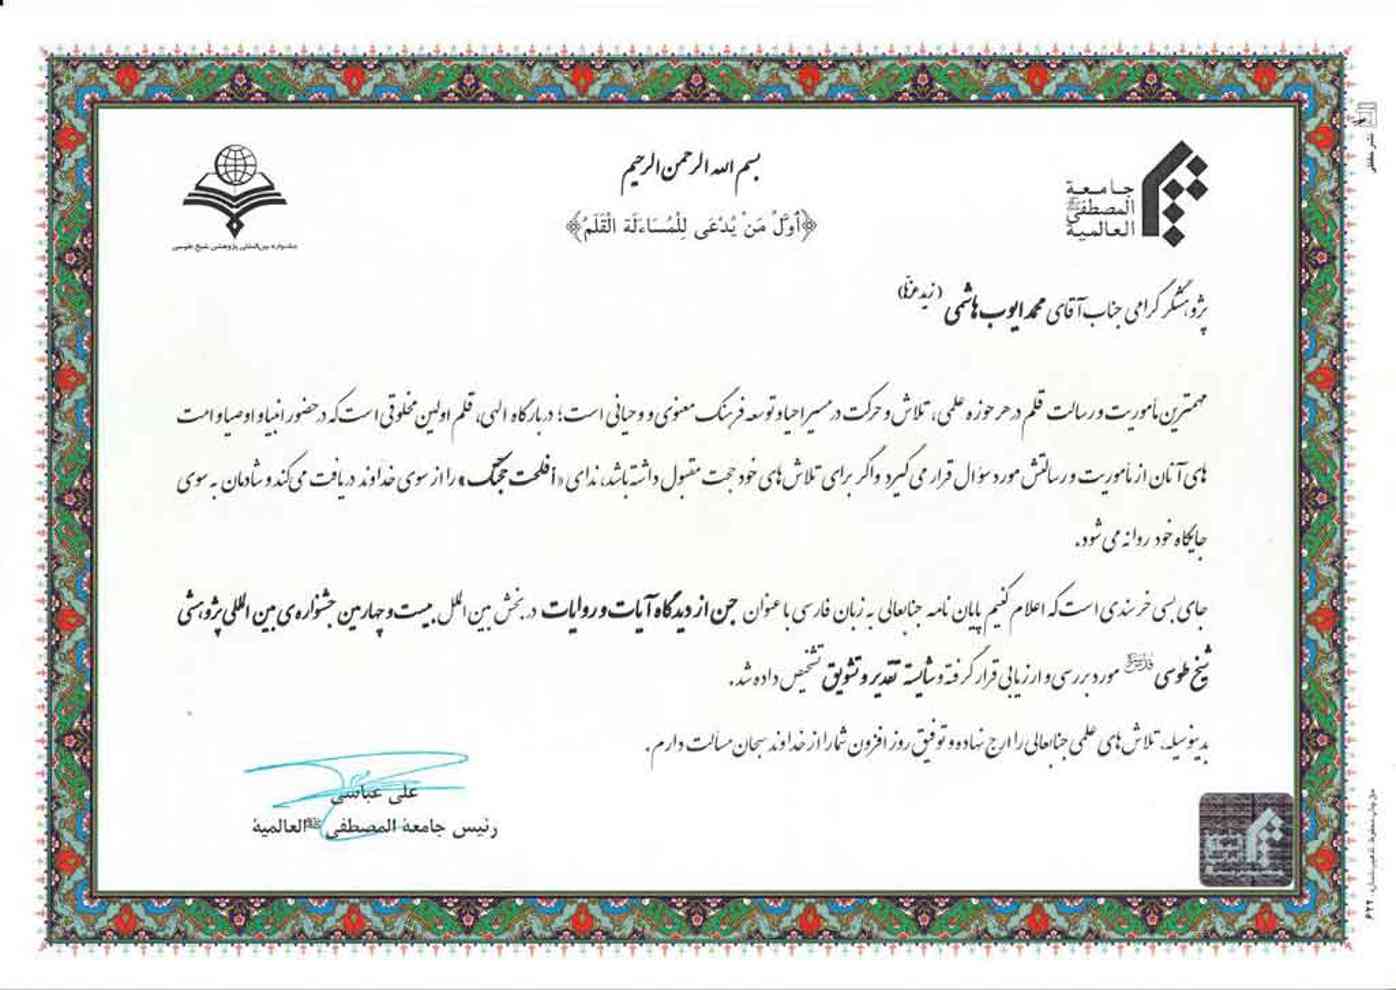 بسم الله الرحمن الرحیم
﴿أَوَّلُ مَنْ يُدْعَى لِلْمُسَاءَلَة الْقَلَمُ﴾
جامعة
المصطفی
العالمیة
جشنواره بین‌المللی پژوهشی شیخ طوسی
پژوهشگر گرامی جناب آقای محمد ایوب هاشمی (زید عزه)
مهمترین مأموریت و رسالت قلم در هر حوزه علمی، تلاش و حرکت در مسیر احیا و توسعه فرهنگ معنوی و وحیانی است؛ در بارگاه الهی، قلم اولین مخلوقی است که در حضور انبیا و اوصیا و امت
های آنان از مأموریت و رسالتش مورد سؤال قرار می گیرد و اگر برای تلاش های خود حجت مقبول داشته باشد، ندای «أفلحت حجتک» را از سوی خداوند دریافت می کند و شادمان به سوی
جایگاه خود روانه می شود.
جای بسی خرسندی است که اعلام کنیم پایان نامه جنابعالی به زبان فارسی با عنوان جن از دیدگاه آیات و روایات در بخش بین الملل بیست و چهارمین جشنواره ی بین المللی پژوهشی
شیخ طوسی مورد بررسی و ارزیابی قرار گرفته و شایسته تقدیر و تشویق تشخیص داده شد.
بدینوسیله، تلاش های علمی جنابعالی را ارج نهاده و توفیق روز افزون شما را از خداوند سبحان مسألت دارم.
علی عباسی
رئیس جامعة المصطفی العالمیة